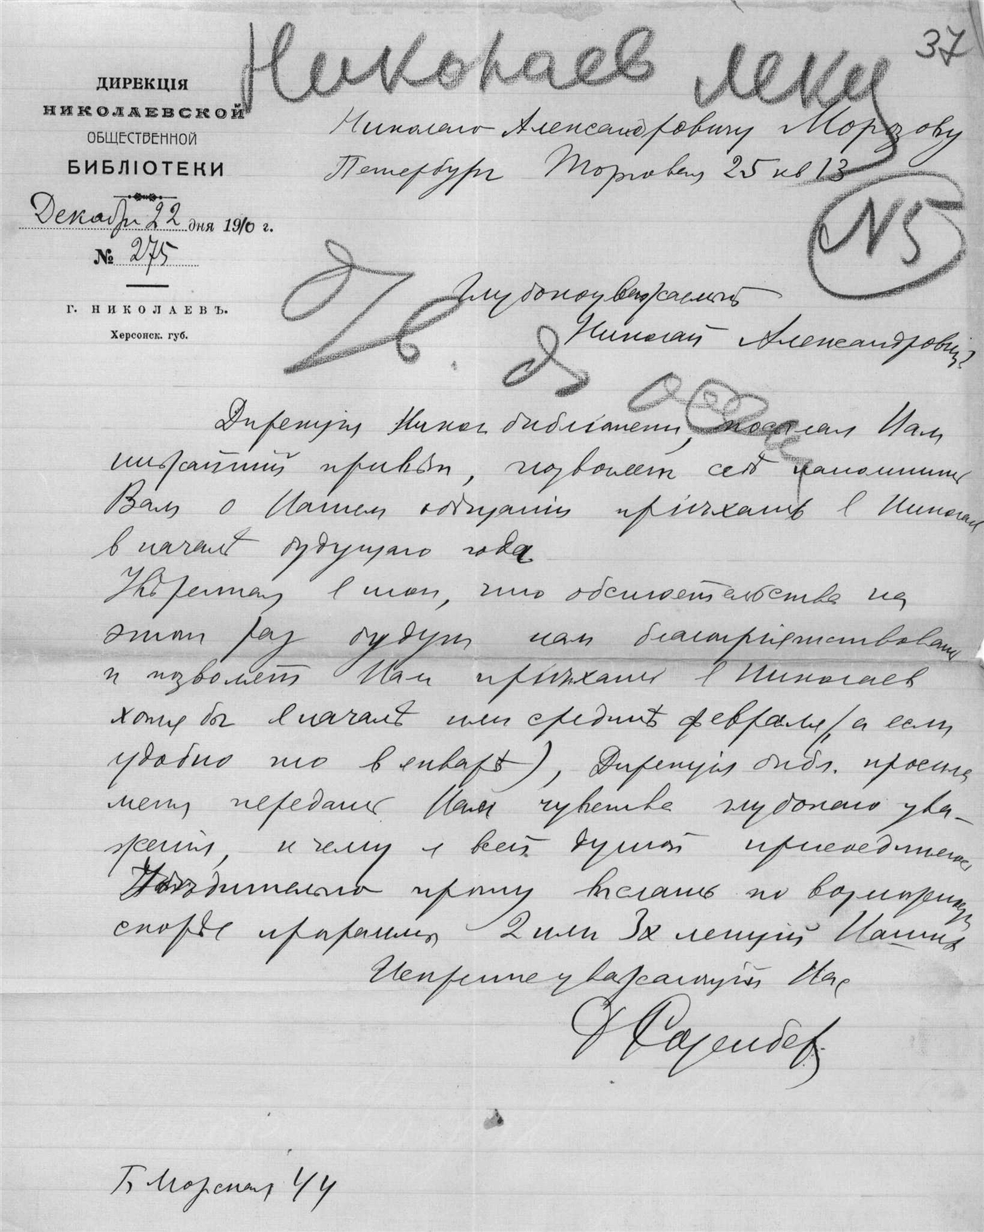 Николаев лекц
37
ДИРЕКЦІЯ
НИКОЛАЕВСКОЙ
ОБЩЕСТВЕННОЙ
БИБЛІОТЕКИ
Декабря 22 дня 1910 г.
№ 275
Г. НИКОЛАЕВЪ.
Херсонск. губ.
Николаю Александровичу Морозову
Петербург Торговая 25 кв 13
N5
Глубокоуважаемый
Николай Александрович
Дирекция Никол библіотеки, посылая Вам
нижайший привѣт, позволяет себѣ напомнить
Вам о Вашем обѣщаніи пріѣхать в Николаев
в началѣ будущаго года
Увѣренная в том, что обстоятельства на
этот раз будут нам благопріятствовать
и позволят Вам пріѣхать в Николаев
хотя бы в началѣ или срединѣ февраля (а если
удобно то в январѣ), Дирекція библ. просила
меня передать Вам чувства глубокаго ува-
женія, к чему я всей душой присоединяюсь
Убѣдительно прошу выслать по возможности
скорѣе программы 2 или 3х лекцій Ваших
Искренне уважающий Вас
Б Морская 44